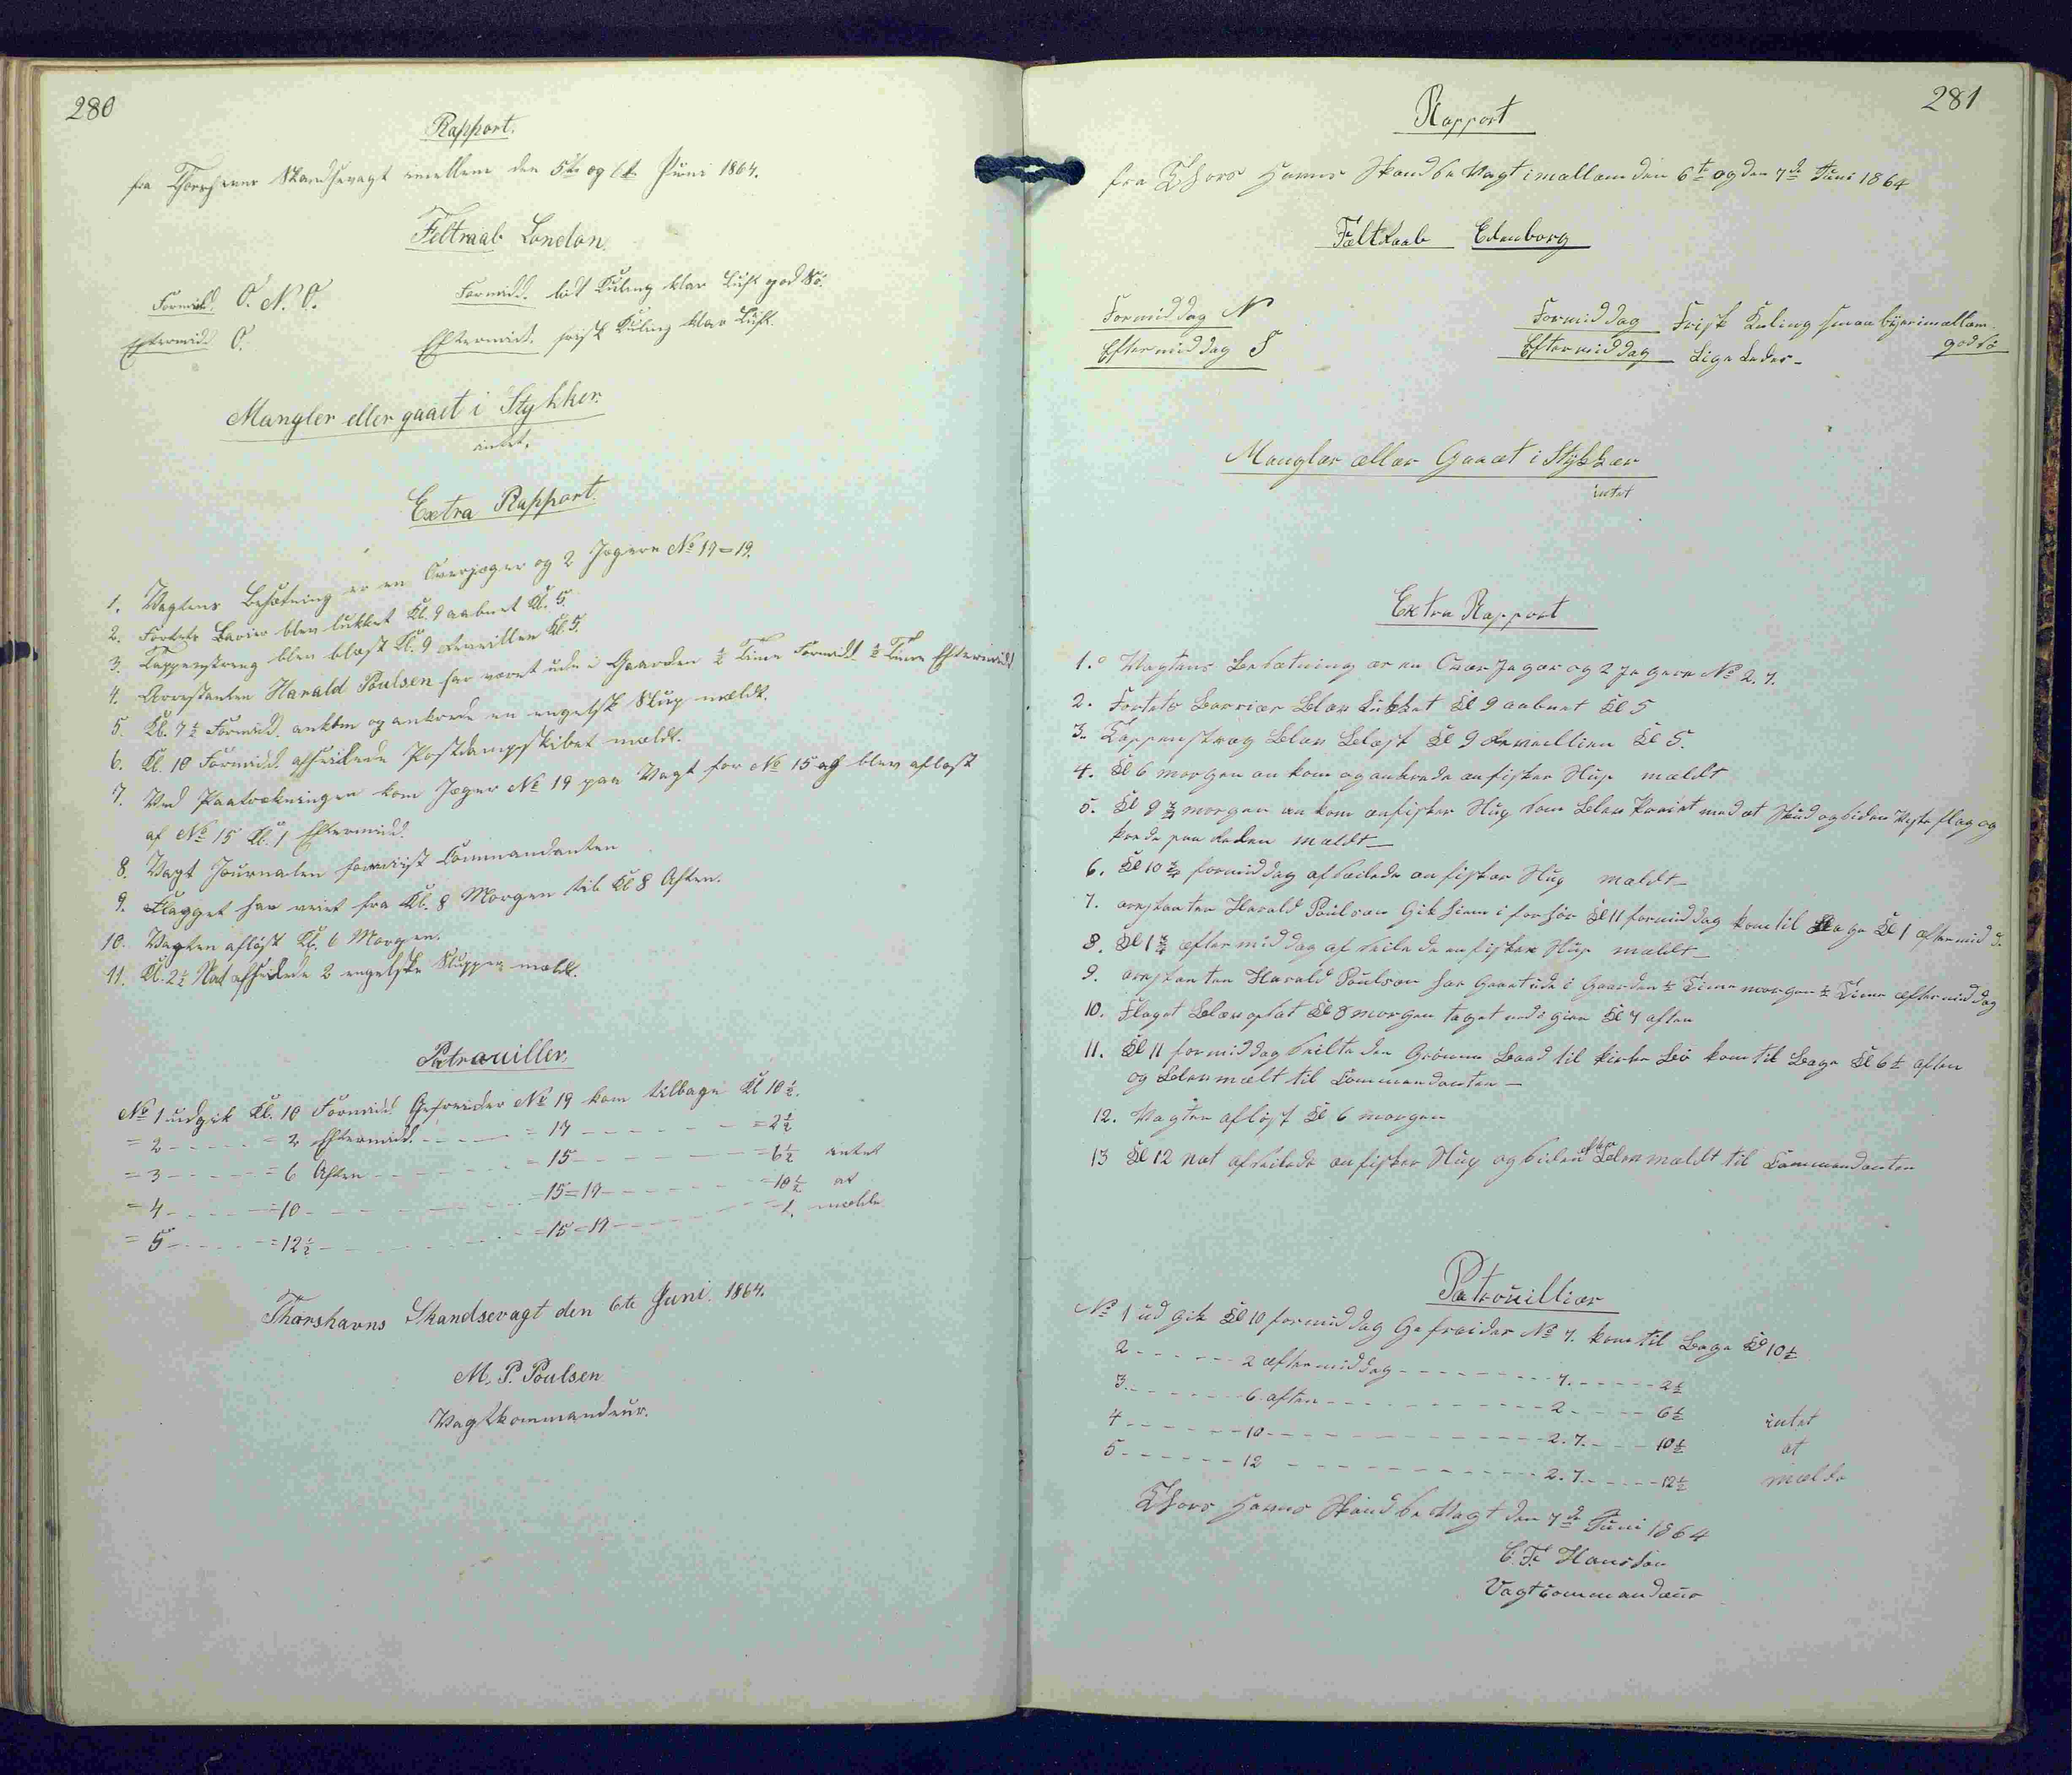 280
Rapport.
fra Thorshavns Skandsevagt imellem den 5te og 6te Juni 1864.
Feltraab London.
Formidd. O. N. O. Formidd. lidt Kuling klar Luft god Sö.
Eftermidd. O. Eftermidd. frisk Kuling klar Luft.
Mangler eller gaaet i Stykker.
intet.
Extra Rapport.
1. Vagtens Besætning er en Overjæger og 2 Jægere No 17=19.
2. Fortets Barier blev lukket Kl. 9 aabnet Kl. 5.
3. Tappenstreng blev blæst Kl. 9 Reveillen Kl. 5.
4. Arrestanten Harald Poulsen har været ude i Gaarden ½ Time Formidd. ½ Time Eftermidd.
5. Kl. 7½ Formidd. ankom og ankrede en engelsk Slup meldt.
6. Kl. 10 Formidd. afseilede Postdampskibet meldt.
7. Ved Paatrækningen kom Jæger No 19 paa Vagt for No 15 og blev aflöst
af No 15 Kl. 1 Eftermidd.
8. Vagt Journalen foreviist Commandanten
9. Flagget har veiet fra Kl. 8 Morgen til Kl 8 Aften.
10. Vagten aflöst Kl. 6 Morgen.
11. Kl. 2½ Nat afseilede 2 engelske Slupper meldt.
Patrouiller.
No 1 udgik Kl. 10 Formidd. Gefreider No 19 kom tilbage Kl 10½.
= 2 - - - - = 2 Eftermidd. - - - - = 17 - - - - - - = 2½
= 3 - - - - = 6 Aften - - - - - - = 15 - - - - - - = 6½ intet
= 4 - - - - = 10 - - - - - - - = 15=17 - - - - - = 10½ at
= 5 - - - - = 12½ - - - - - - = 15=17 - - - - - = 1. melde
Thorshavns Skandsevagt den 6te Juni. 1864.
M. P. Poulsen
Vagtkommandeur.
281
Rapport
fra Thors Havns Skandse Vagt imællem den 6te og den 7de Juni 1864
Fæltraab Edenborg
Formiddag N Formiddag Frisk Kuling smaa byer imællem
god sö
Eftermiddag S Eftermiddag Lige Ledes -
Mangler æller Gaaet i Stykker
intet
Extra Rapport
1. Vagtens Besætning ær en Over Jæger og 2 Jægere No 2. 7.
2. Fortets Barriær Blev Lukket Kl 9 aabnet Kl 5
3. Tappenstræg Blev Blæst Kl 9 Reveillien Kl 5.
4. Kl 6 morgen an kom og ankrede en fisker Slup mældt
5. Kl 9¾ morgen an kom en fisker Slup som Blev Praiet med et Skud og siden Hejste flag og
krede paa Reden mældt -
6. Kl 10¾ formiddag afseilede en fisker Slup mældt -
7. arestanten Harald Poulsen Gik hiem i forhör Kl 11 formiddag kom til Bage Kl 1 eftermidd
8. Kl 1¾ æftermiddag afseilede en fisker Slup mældt -
9. arestanten Harald Poulsen har Gaaet ude i Gaarden ½ Time morgen ½ Time æftermiddag
10. Flaget Blev opsat Kl 8 morgen taget ned igien Kl 7 aften
11. Kl 11 formiddag seilte den Grönne Baad til Kirke Bö kom til Bage Kl 6½ aften
og Blev mælt til Commendanten -
12. Vagten aflöst Kl 6 morgen
13 Kl 12 nat afseilede en fisker Slup og siden Blev mældt til Commendanten
Patrouillier
No 1 ud gik Kl 10 formiddag Gefreider No 7. kom til Bage Kl 10½
2 - - - - - 2 æftermiddag - - - - - - 7. - - - - 2½
3. - - - - - 6 aften - - - - - - 2 - - - - 6½ intet
4 - - - - - 10 - - - - - - 2. 7. - - - 10½ at
5 - - - - - 12 - - - - - - 2. 7. - - - 12½ mælde
Thors Havns Skandse Vagt den 7de Juni 1864
C. F. Hansson
Vagtcommandeur